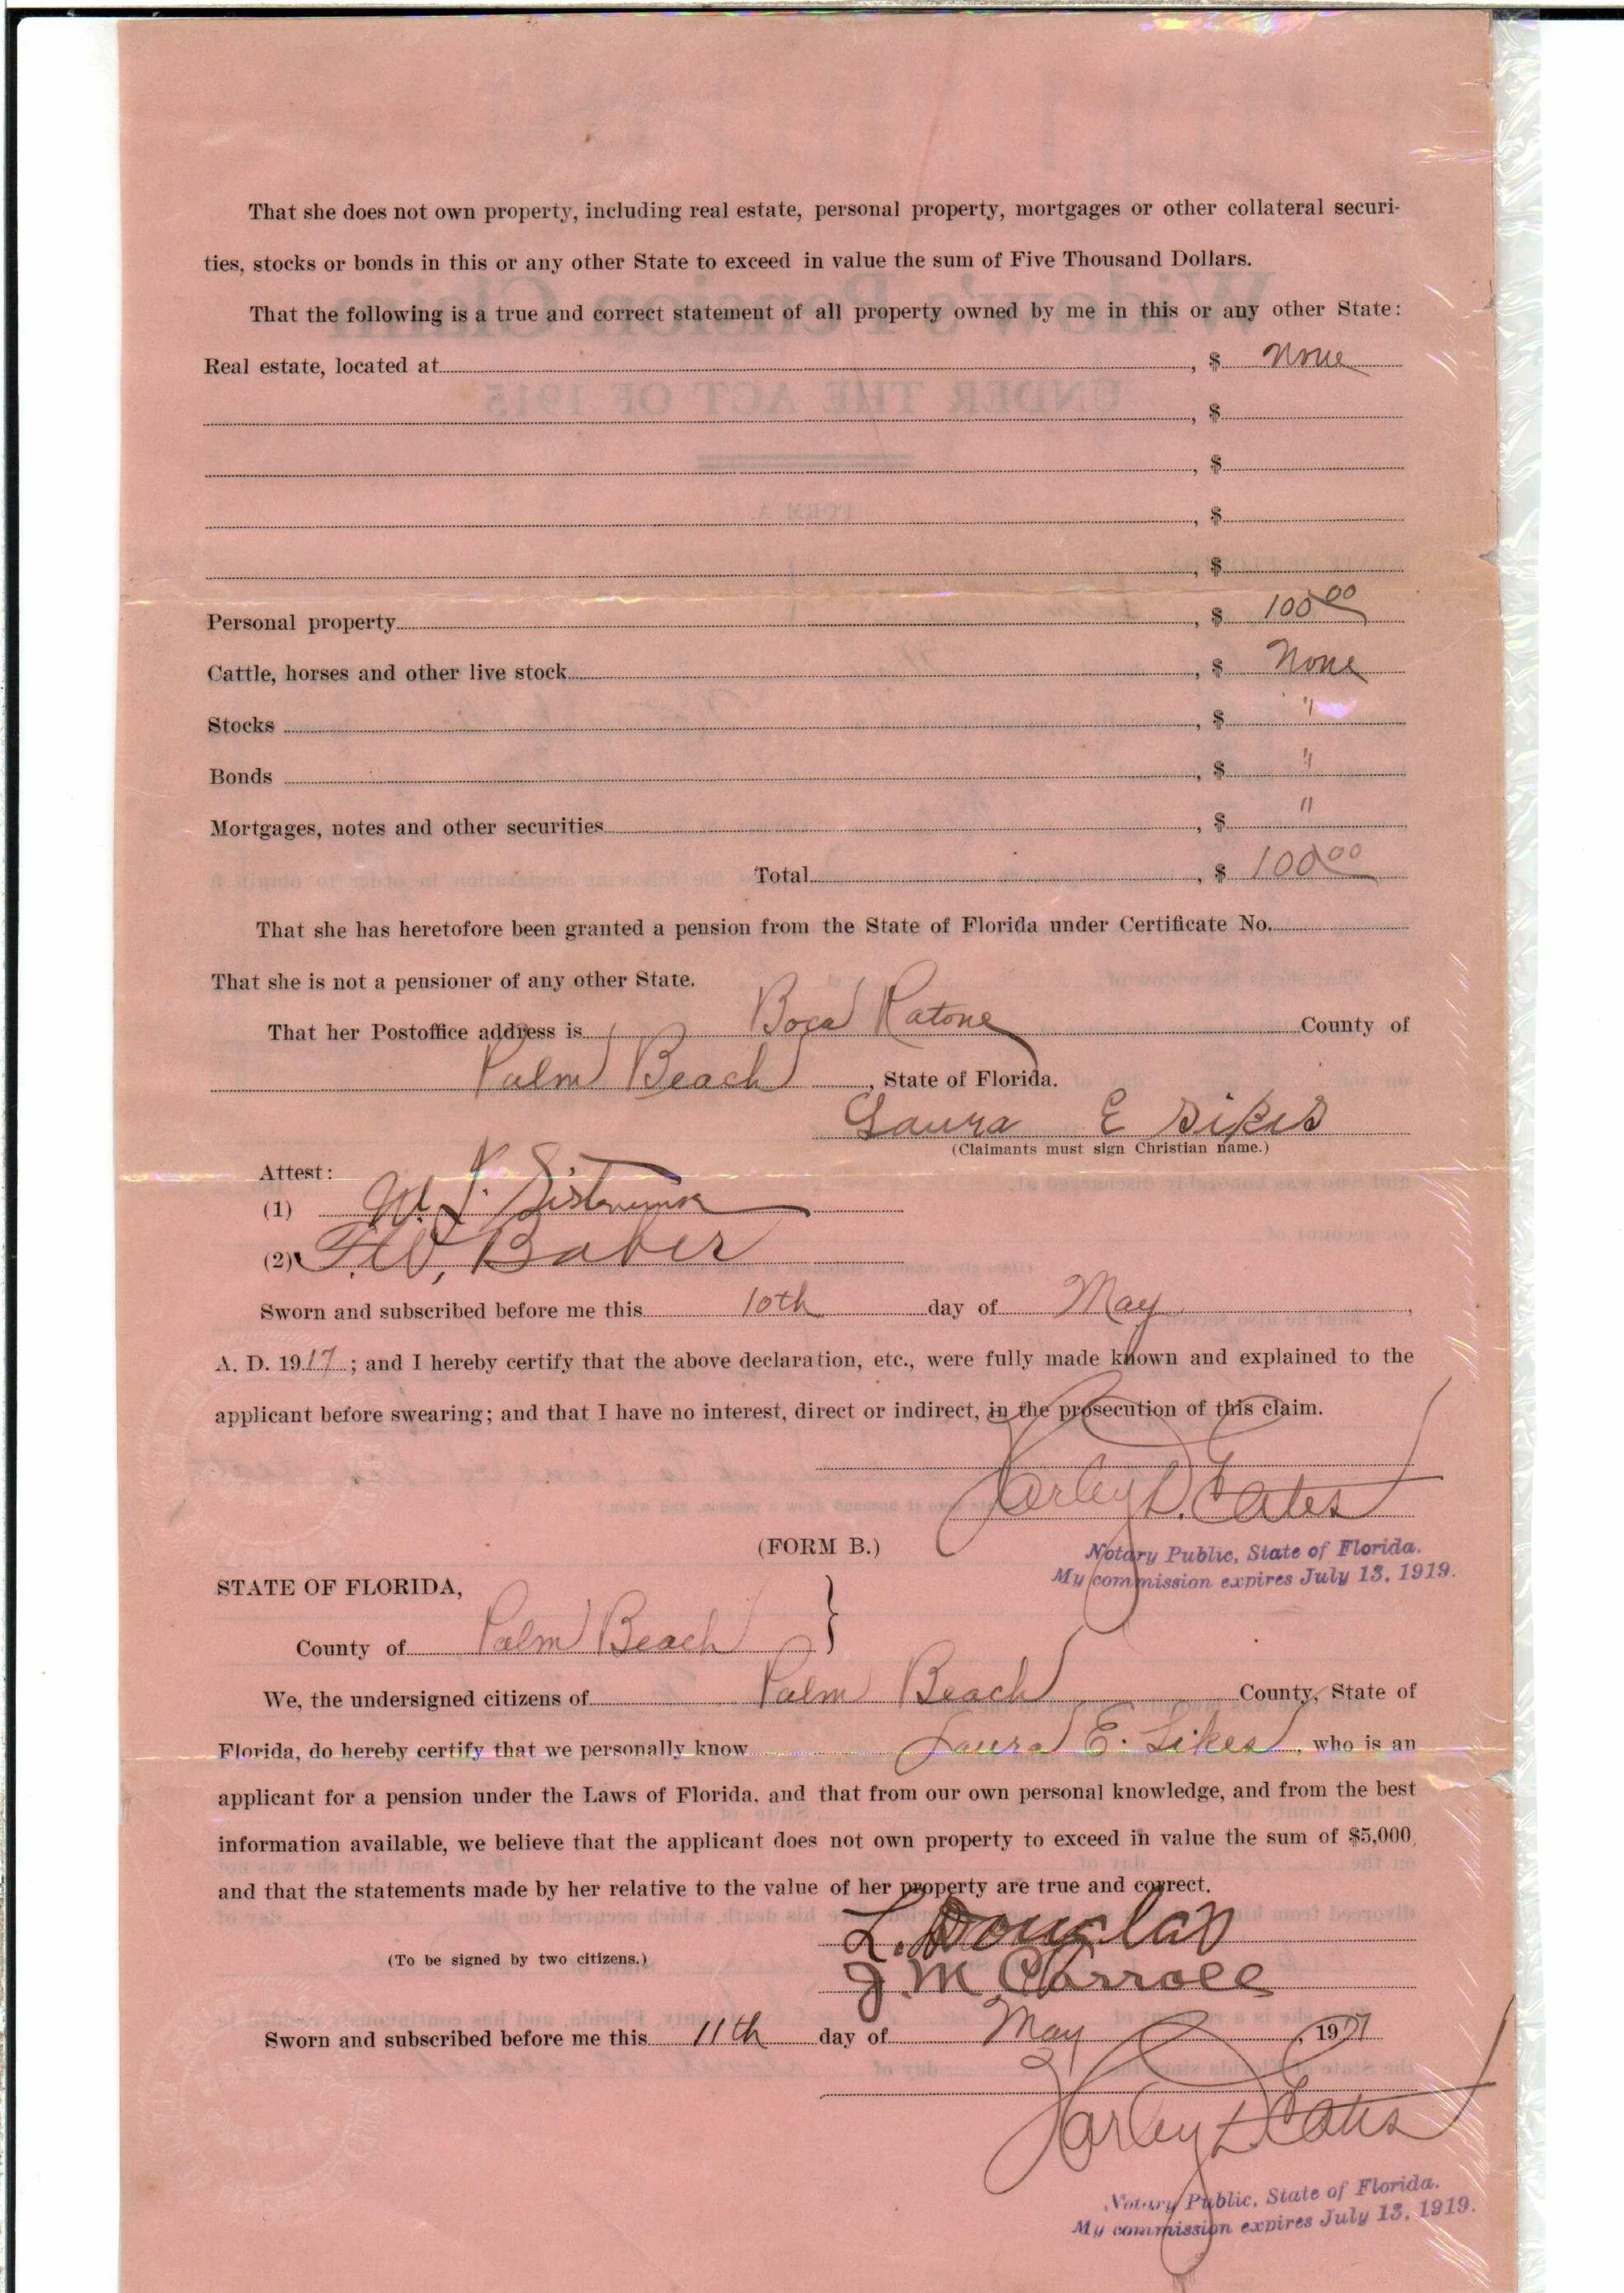 That she does not own property, including real estate, personal property, mortgages or other collateral securi-
ties, stocks or bonds in this or any other State to exceed in value the sum of Five Thousand Dollars.
That the following is a true and correct statement of all property owned by me in this or any other State:
Real estate, located at , $ None
, $
, $
, $
, $
Personal property , $ 100 00
Cattle, horses and other live stock , $ None
Stocks , $ "
Bonds , $ "
Mortgages, notes and other securities , $ "
Total , $ 100 00
That she has heretofore been granted a pension from the State of Florida under Certificate No.
That she is not a pensioner of any other State.
That her Postoffice address is Boca Ratone County of
Palm Beach , State of Florida.
Laura E Sikes
(Claimants must sign Christian name.)
Attest:
(1)
(2) F.W. Baber
Sworn and subscribed before me this 10th day of May ,
A. D. 1917 ; and I hereby certify that the above declaration, etc., were fully made known and explained to the
applicant before swearing; and that I have no interest, direct or indirect, in the prosecution of this claim.
(FORM B.)
Notary Public, State of Florida.
My commission expires July 13, 1919.
STATE OF FLORIDA,
County of Palm Beach }
We, the undersigned citizens of Palm Beach County, State of
Florida, do hereby certify that we personally know Laura E. Sikes , who is an
applicant for a pension under the Laws of Florida, and that from our own personal knowledge, and from the best
information available, we believe that the applicant does not own property to exceed in value the sum of $5,000,
and that the statements made by her relative to the value of her property are true and correct.
L. Douglas
(To be signed by two citizens.)
J. M. Carroll
Sworn and subscribed before me this 11th day of May , 1917
Notary Public, State of Florida.
My commission expires July 13, 1919.